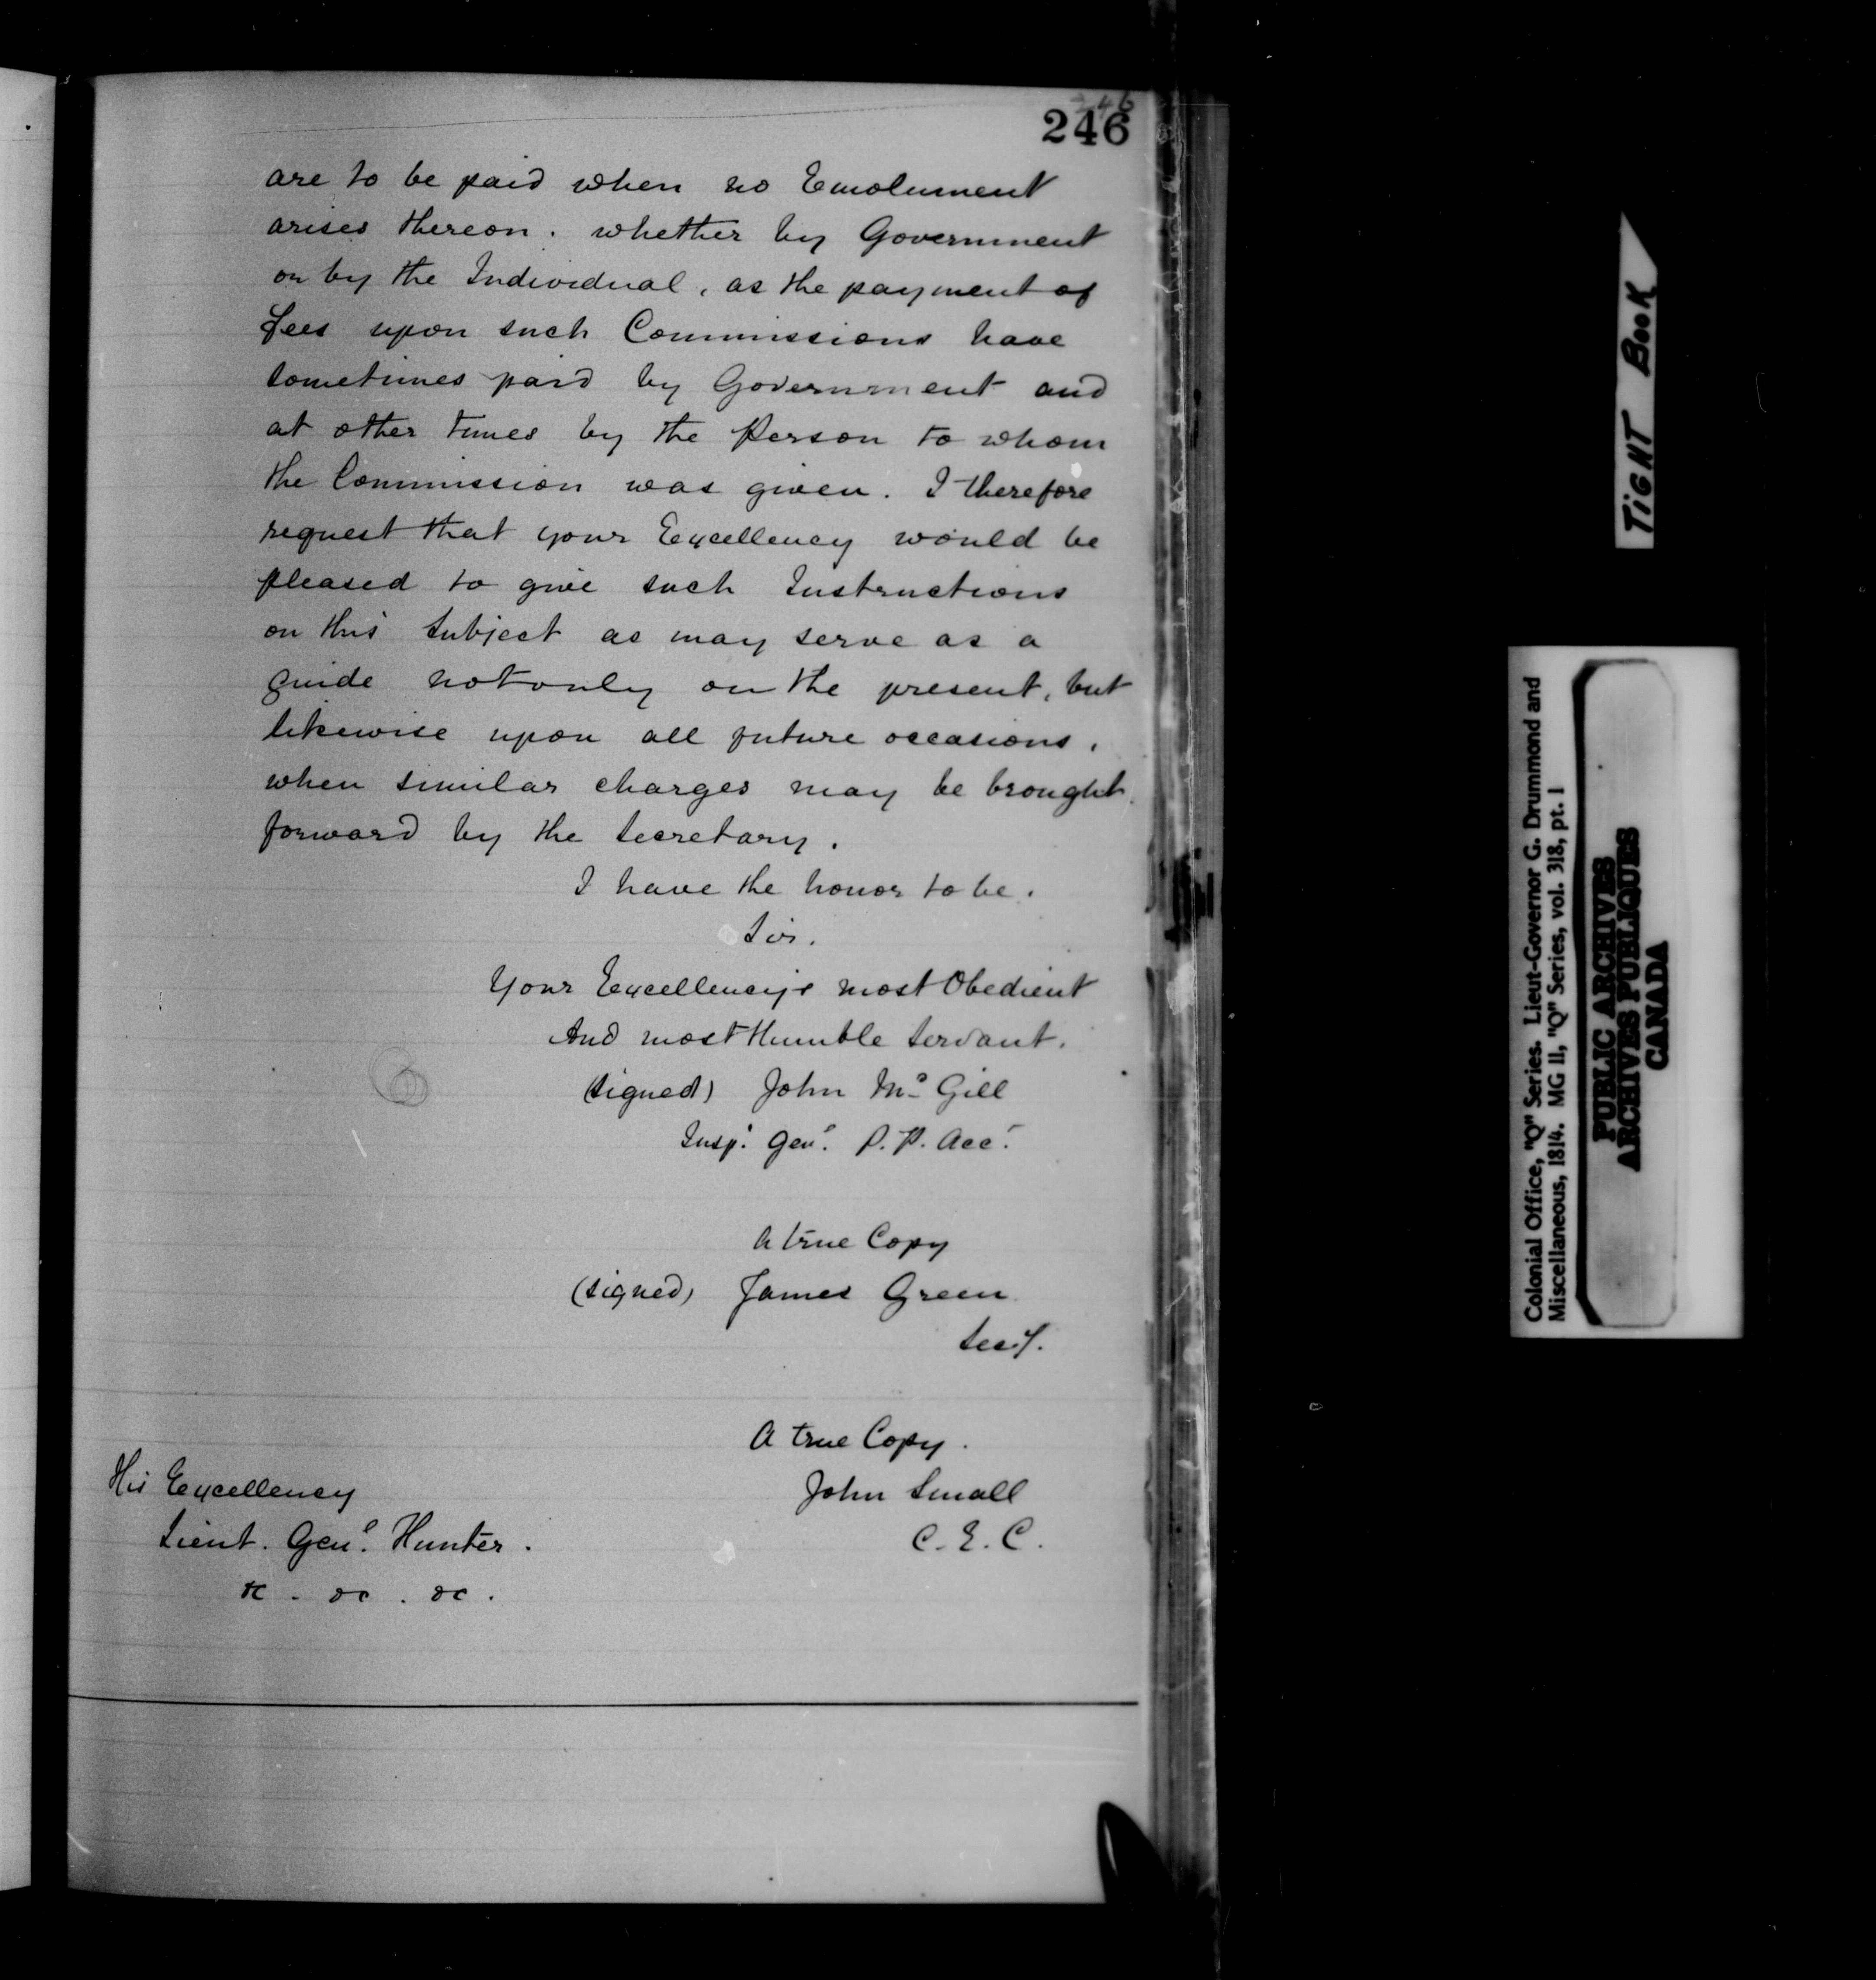 246
246
are to be paid when no Emolument
arises thereon. whether by Government
or by the Individual, as the payment of
Fees upon such Commissions have
sometimes paid by Government and
at other times by the Person to whom
the Commission was given. I therefore
request that your Excellency would be
pleased to give such Instructions
on this Subject as may serve as a
guide not only on the present, but
likewise upon all future occasions,
when similar charges may be brought
forward by the Secretary.
I have the honor to be.
Sir.
Your Excellency's most Obedient
And most Humble Servant.
(Signed) John Mc Gill
Insp. Genl. P. P. Acc.
A true Copy
(Signed) James Green
Secy.
A true Copy.
John Small
C. E. C.
His Excellency
Lieut. Genl. Hunter.
&c. &c. &c.
TIGHT BOOK
Colonial Office, "Q" Series. Lieut-Governor G. Drummond and
Miscellaneous, 1814. MG 11, "Q" Series, vol. 318, pt. 1
PUBLIC ARCHIVES
ARCHIVES PUBLIQUES
CANADA